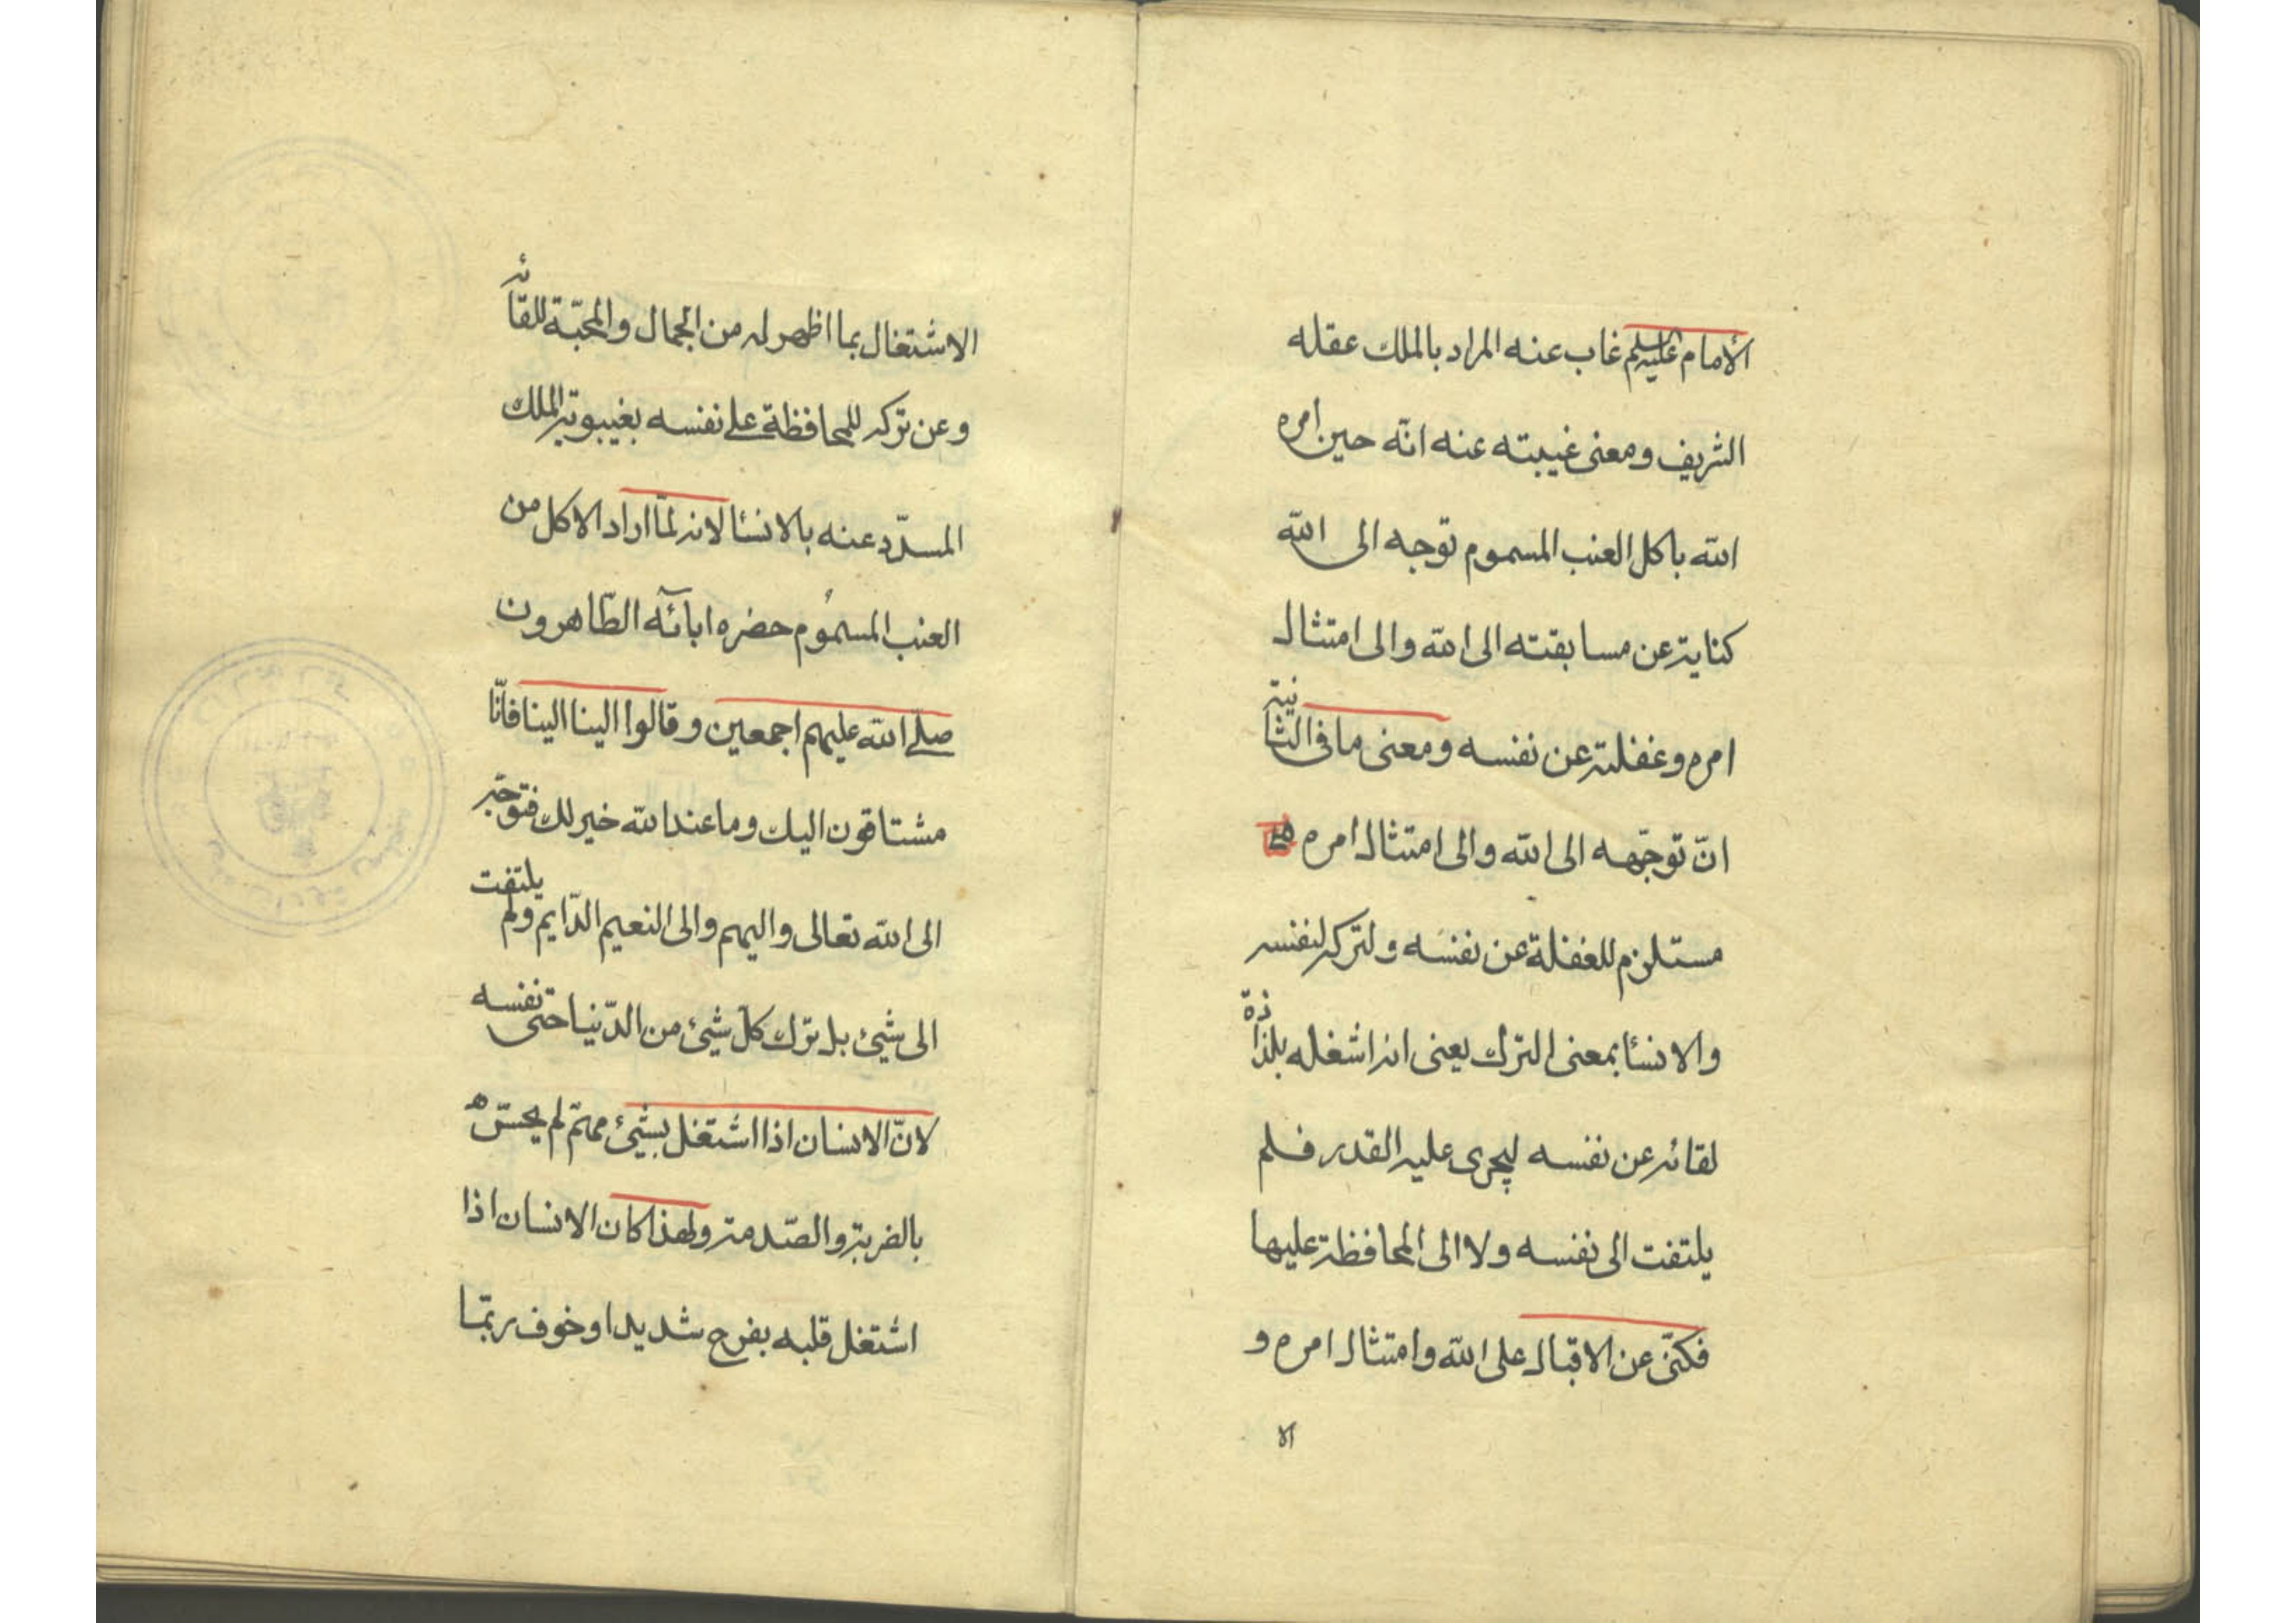 الأمام عليه السلم غاب عنه المراد بالملك عقله
الشريف ومعنى غيبته عنه انّه حين امره
الله باكل العنب المسموم توجه الى الله
كناية عن مسابقته الى الله والى امتثال
امره وغفلته عن نفسه ومعنى ما فى الثانية
انّ توجّهه الى الله والى امتثال امره
مستلزم للغفلة عن نفسه ولتركه لنفسه
والانسٔا بمعنى الترك يعنى انه اشغله بلذاذة
لقائه عن نفسه ليجرى عليه القدر فلم
يلتفت الى نفسه ولا الى المحافظة عليها
فكنّى عن الاقبال على الله وامتثال امره و
الا
الاشتغال بما اظهر له من الجمال والمحبّة للقائه
وعن تركه للمحافظة على نفسه بغيبوبة الملك
المسدّد عنه بالانسٔا لانه لمّا اراد الاكل من
العنب المسموم حضره ابآئه الطّاهرون
صلى الله عليهم اجمعين وقالوا الينا الينا فانّا
مشتاقون اليك وما عند الله خير لك فتوجّه
الى الله تعالى واليهم والى النعيم الدّايم ولم يلتفت
الى شيئ بل ترك كلّ شيئ من الدّنيا حتى نفسه
لانّ الانسان اذا اشتغل بشيئ مهمّ لم يحسّ
بالضربة والصّدمة ولهذا كان الانسان اذا
اشتغل قلبه بفرح شديد او خوف ربّما